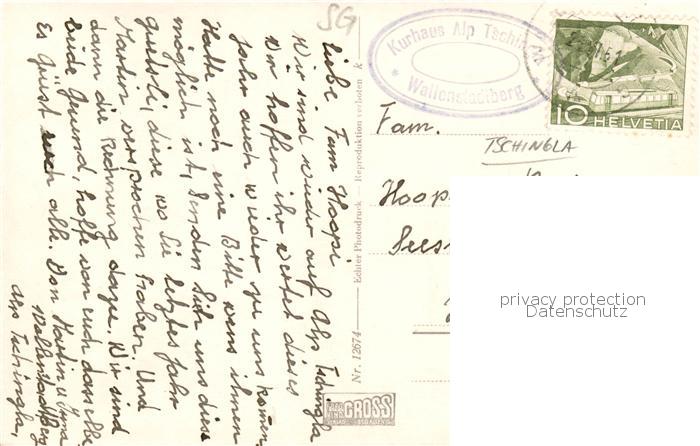 SG
Liebe Fam Hoopi
Wir sind wieder auf Alp Tschingla
Wir hoffen ihr werdet dieses
Jahr auch wieder zu uns kommen
Hatte noch eine Bitte wens ihnen
möglich ist, senden Sie uns diese
diese wo Sie letztes Jahr
Martin versprochen haben. Und
dann die Rechnung dazu. Wir sind
beide Gesund, hoffe von euch dasselbe
Es Grüsst euch alle. Von Martin u.
Wallenstadtberg
Alp Tschingla,
Nr. 12674 Echter Photodruck — Reproduktion verboten k
GROSS
Kurhaus Alp Tschin
Wallenstadtberg
10 HELVETIA
TSCHINGLA
Fam.
Hoop
Sees
privacy protection
Datenschutz